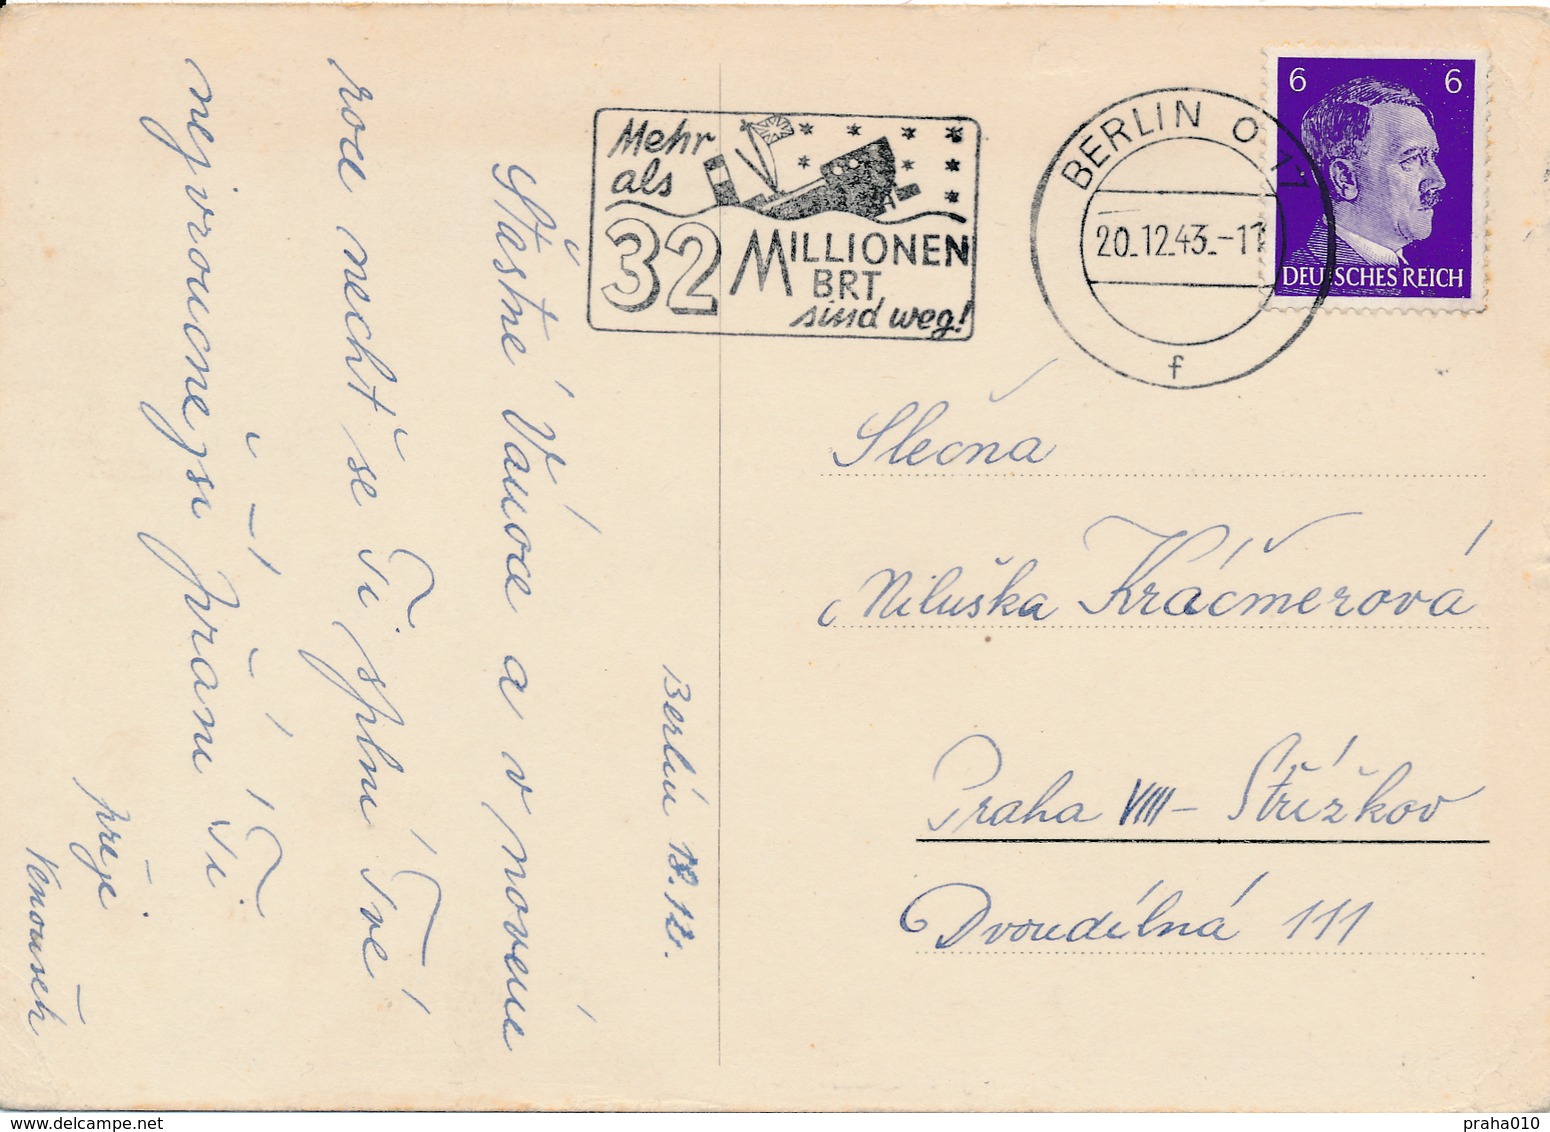 Mehr
als
32 MILLIONEN
BRT
sind weg!
BERLIN O 17
20.12.43.-17
f
6 6
DEUTSCHES REICH
Berlín 18.12.
Šťastné Vánoce a v novém
roce nechť se Ti splní Tvé
nejvroucnejší přání Ti
přeje
Venoušek
Slečna
Miluška Kráčmerová
Praha VIII - Střížkov
Dvoudílná 111
delcampe.net
praha010